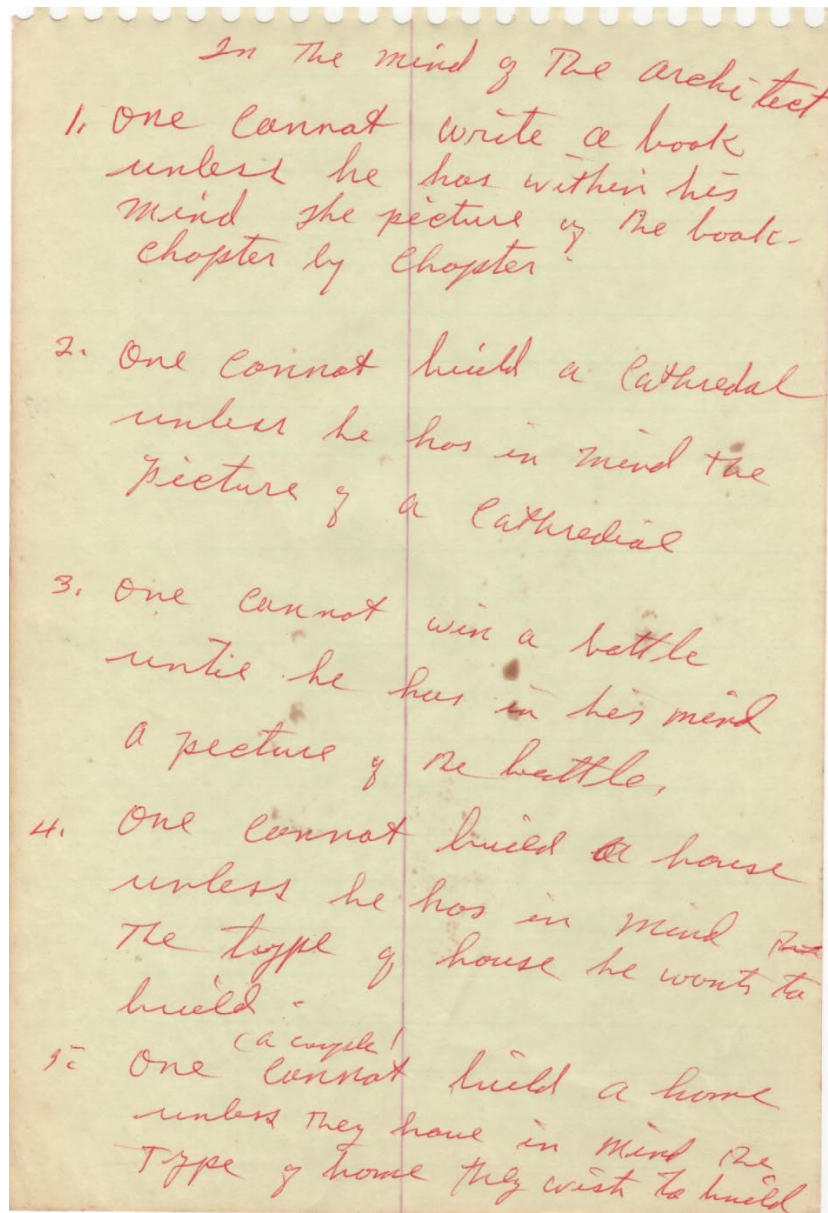 In the mind of the architect
1. One cannot write a book
unless he has within his
mind the picture of the book -
chapter by chapter.
2. One cannot build a Cathedral
unless he has in mind the
picture of a Cathredial
3. One cannot win a battle
until he has in his mind
a picture of the battle.
4. One cannot build a house
unless he has in mind the
the type of house he wants to
build.
(a couple)
5. One cannot build a home
unless they have in mind the
type of home they wish to build